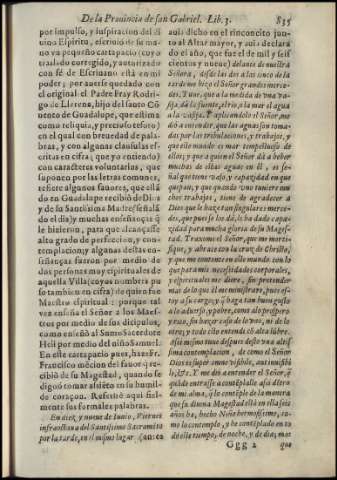 De la Prouincia de san Gabriel. Lib. 3. 835
por impulso, y suspiracion del di
uino Espiritu, escriuio de su ma-
no vn pequeño cartapacio (cuyo
traslado corregido, y autorizado
con fè de Escriuano està en mi
poder; por auerse quedado con
el original el Padre Fray Rodri-
go de Llerena, hijo del santo Cō
uento de Guadalupe, que estima
como reliquia, y precioso tesoro)
en el qual con breuedad de pala-
bras, y con algunas clausulas es-
critas en cifra (que yo entiendo)
con caracteres voluntarios, que
suponen por las letras comunes,
refiere algunos fauores, que estã
do en Guadalupe recibiò de Dios
y de su Santissima Madre (señalã
do el dia) y muchas enseñanças q̃
le hizieron, para que alcançasse
alto grado de perfeccion, y con-
templacion, y algunas destas en-
señanças fueron por medio de
dos personas muy espirituales de
aquella Villa (cuyos nombres pu
so tambien en cifra) de quien fue
Maestro espiritual: porque tal
vez enseña el Señor a los Maes-
tros por medio de sus dicipulos,
como enseñò al Sumo Sacerdote
Heli por medio del niño Samuel.
En este cartapacio pues, haze Fr.
Francisco mencion del fauor q̃ re-
cibiò de su Magestad, quando se
dignò tomar assiēto en su humil-
de coraçon. Referirè aqui fiel-
mente sus formales palabras.
En diez y nueue de Iunio, Viernes
infraoctaua del Santissimo Sacramēto
por la tarde, en el mismo lugar (auia
auia dicho en el rinconcito jun-
to al Altar mayor, y auia declara
do el año, que fue el de mil y seis
cientos y nueue) delante de nuestra
Señora, desde las dos a las cinco de la
tarde me hizo el Señor grandes merce-
des. Tuue, que a la medida de vna va-
sija dà la fuente, el rio, o la mar el agua
a la vasija. Y aplicandolo el Señor, me
dà a entender, que las aguas son toma-
das por las tribulaciones, y trabajos, y
que ella mundo es mar tempestuoso de
ellos; y que a quien el Señor dà a beber
muchas de estas aguas en èl, es se-
ñal que tiene vaso, y capazidad en que
quepan; y que quando vno tuuiere mu
chos trabajos, tiene de agradecer a
Dios que le haze tan singulares merce-
des, que pues se los dà, le ha dado capa-
zidad para mucha gloria de su Mages-
tad. Traxome el Señor, que me morti-
fique, y abraçe con la cruz de Christo,
y que me contente en este mundo con lo
que para mis necessidades corporales,
y espirituales me diere, sin pretender
mas de lo que èl me ministrare, pues es-
toy a su cargo; y q̃ haga tan buen gusto
a lo aduerso, y pobre, como a lo prospero
y rico, sin hazer caso de lo vno, ni de lo
otro; y todo esto entendi cō altez libre.
assi mismo tuue despues desto vna altis-
sima contemplacion, de como el Señor
Dios es superomne visibile, aut inuisibi
le, &c. Y me diò a entender el Señor, q̃
quādo entrasse a contēplarle assi dētro
de mi alma, q̃ lo contēple de la manera
que su diuina Magestad està en ella seis
años ha, hecho Niño hermosissimo, co-
mo lo contemplo, y he contemplado en to
do este tiempo, de noche, y de dia; mas
Ggg 2 que